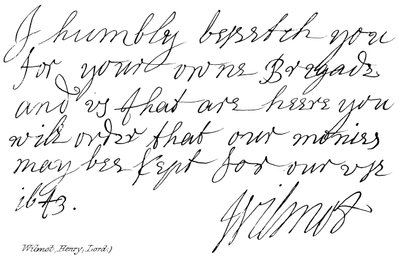 I humbly beseetch you
for your owne Bregade
and us that are heere you
will order that our monies
may bee kept for our use
1643.
Wilmot
Wilmot, Henry, Lord.)